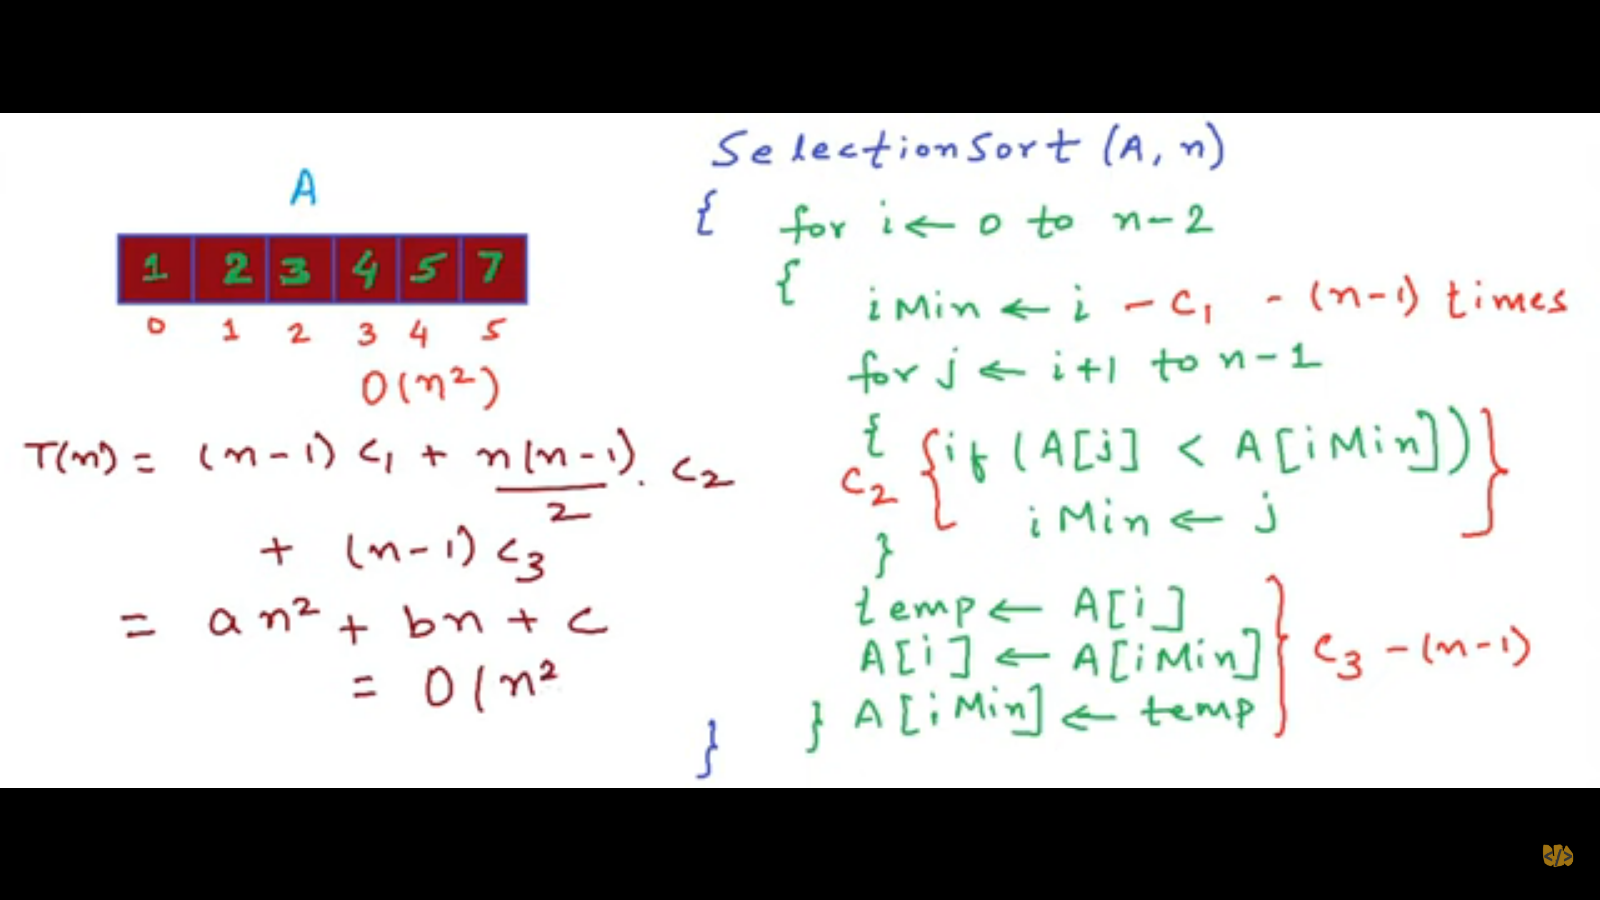 A
1 2 3 4 5 7
0 1 2 3 4 5
O(n²)
T(n) = (n-1) C₁ + n(n-1)/2 . C₂
+ (n-1) C₃
= an² + bn + c
= O(n²
SelectionSort (A, n)
{ for i ← 0 to n-2
{
iMin ← i - C₁ - (n-1) times
for j ← i+1 to n-1
{
C₂ { if (A[j] < A[iMin]) }
iMin ← j
}
temp ← A[i]
A[i] ← A[iMin] } C₃ - (n-1)
} A[iMin] ← temp
}